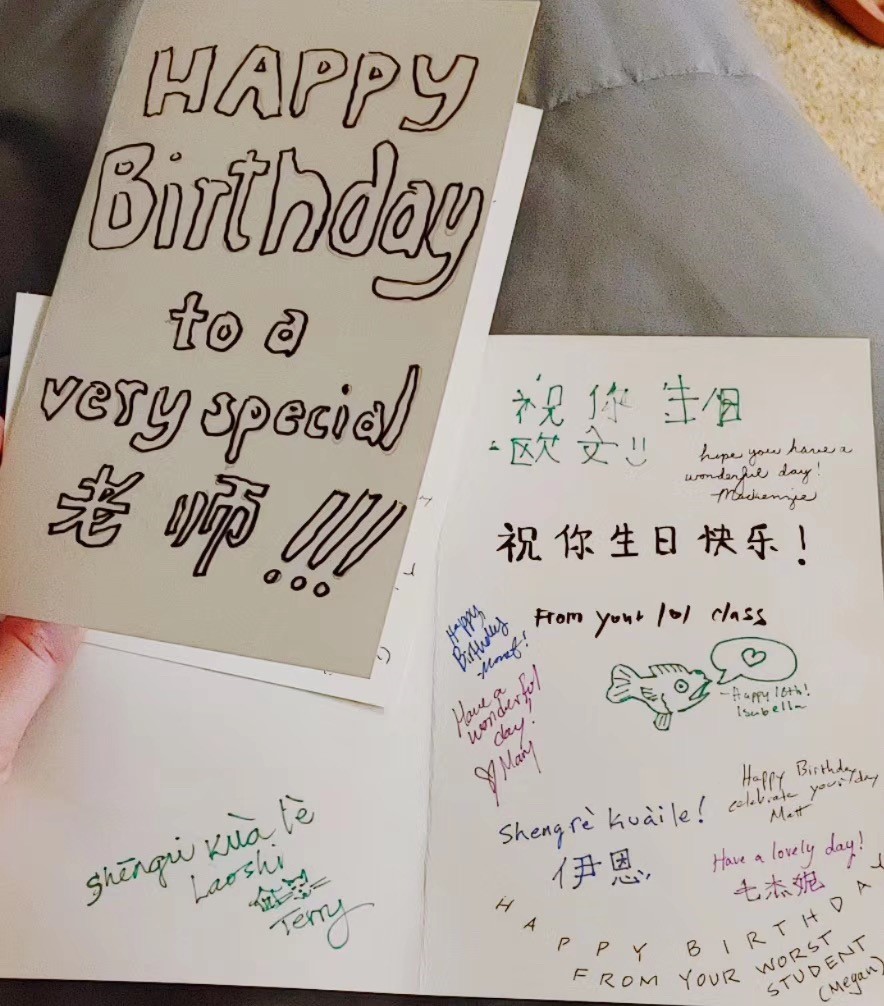 HAPPY
Birthday
to a
very special
老师!!!
祝你生日
欧文!!
hope you have a
wonderful day!
Mackenzie
祝你生日快乐!
From your 101 class
Happy
Birthday
Have a
wonderful
day!
♡ Mary
-Happy 16th!
Isabella
Happy Birthday,
celebrate your day
Matt
Shengrè kuàile!
伊恩
Have a lovely day!
毛杰妮
HAPPY BIRTHDAY
FROM YOUR WORST
STUDENT
(Megan)
Shēngri kuà lè
Laoshi
Terry